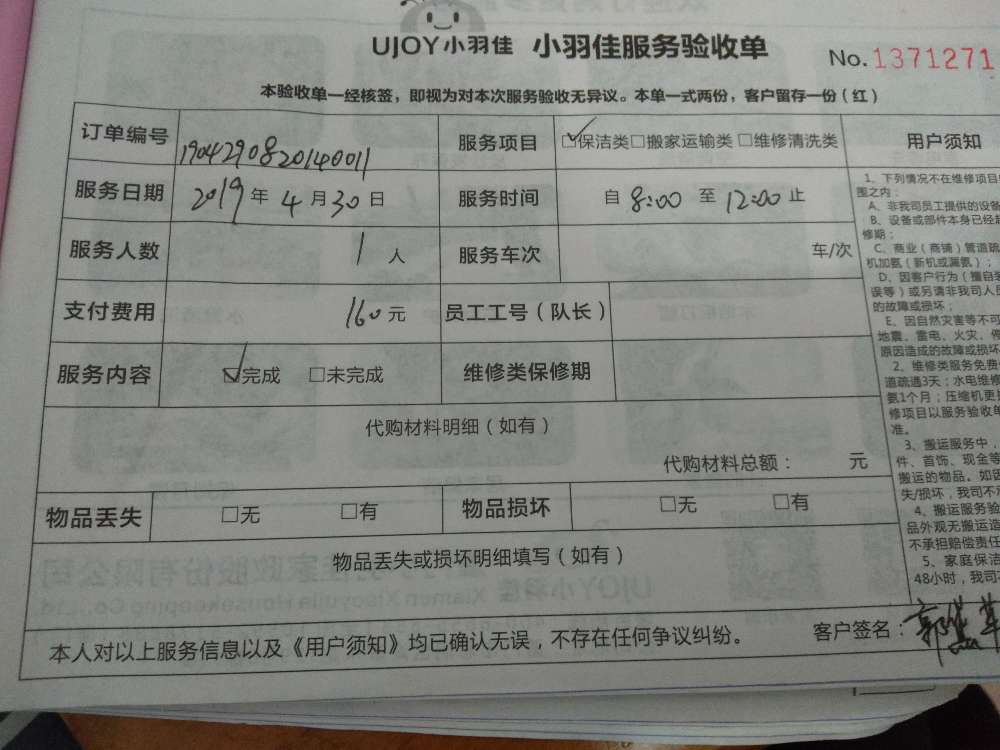 UJOY小羽佳 小羽佳服务验收单
No.1371271
本验收单一经核签，即视为对本次服务验收无异议。本单一式两份，客户留存一份（红）
订单编号 1904290820140011 服务项目 ☑保洁类□搬家运输类□维修清洗类
服务日期 2019年4月30日 服务时间 自 8:00 至 12:00 止
服务人数 1人 服务车次 车/次
支付费用 160元 员工工号（队长）
服务内容 ☑完成 □未完成 维修类保修期
代购材料明细（如有）
代购材料总额： 元
物品丢失 □无 □有 物品损坏 □无 □有
物品丢失或损坏明细填写（如有）
本人对以上服务信息以及《用户须知》均已确认无误，不存在任何争议纠纷。 客户签名：
用户须知
1、下列情况不在维修项目
围之内：
A、非我司员工提供的设备
B、设备或部件本身已经
修期；
C、商业（商铺）管道疏
机加氨（新机或漏氨）；
D、因客户行为（擅自
误等）或另请非我司人员
的故障或损坏；
E、因自然灾害等不可
地震、雷电、火灾、
原因造成的故障或损坏
2、维修类服务免费
道疏通3天；水电维修
氨1个月；压缩机更
修项目以服务验收单
准。
3、搬运服务中，
件、首饰、现金等
搬运的物品。如因
失/损坏，我司不
4、搬运服务验
品外观无搬运造
不承担赔偿责任
5、家庭保洁
48小时，我司